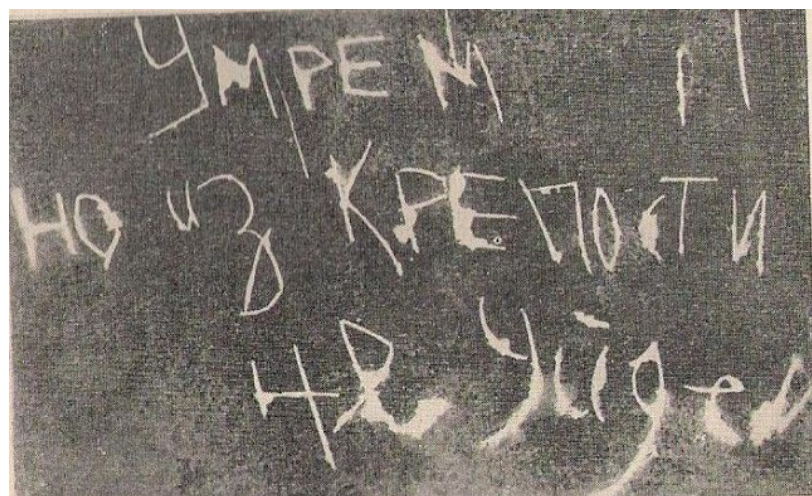 УМРЕМ
НО ИЗ КРЕПОСТИ
НЕ УЙДЕМ